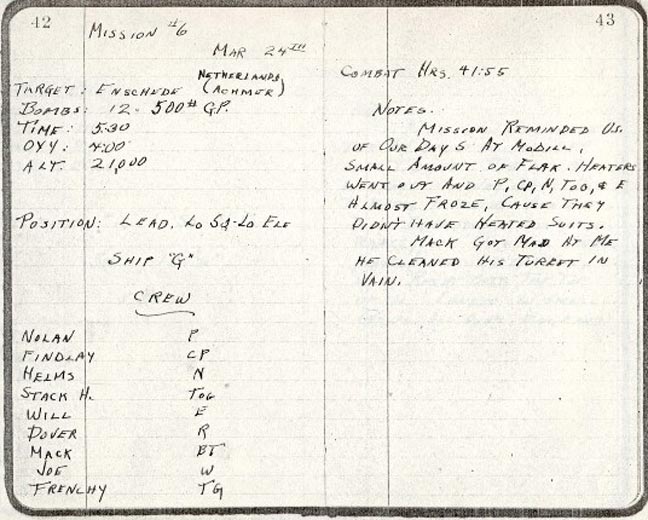 42
Mission #6
Mar 24TH
Netherlands
Target: Enschede (Achmer)
Bombs: 12 - 500# G.P.
Time: 5:30
Oxy: 4:00
Alt: 21,000
Position: Lead, Lo Sq-Lo Ele
Ship "G"
Crew
Nolan P
Findlay CP
Helms N
Stack H. Tog
Will E
Dover R
Mack BT
Joe W
Frenchy TG
43
Combat Hrs. 41:55
Notes.
Mission Reminded Us.
of Our Days At McDill,
Small Amount of Flak. Heaters
Went out And P, CP, N, Tog, & E
Almost Froze, Cause They
Didn't Have Heated Suits.
Mack Got Mad At Me
He Cleaned His Turret In
Vain.